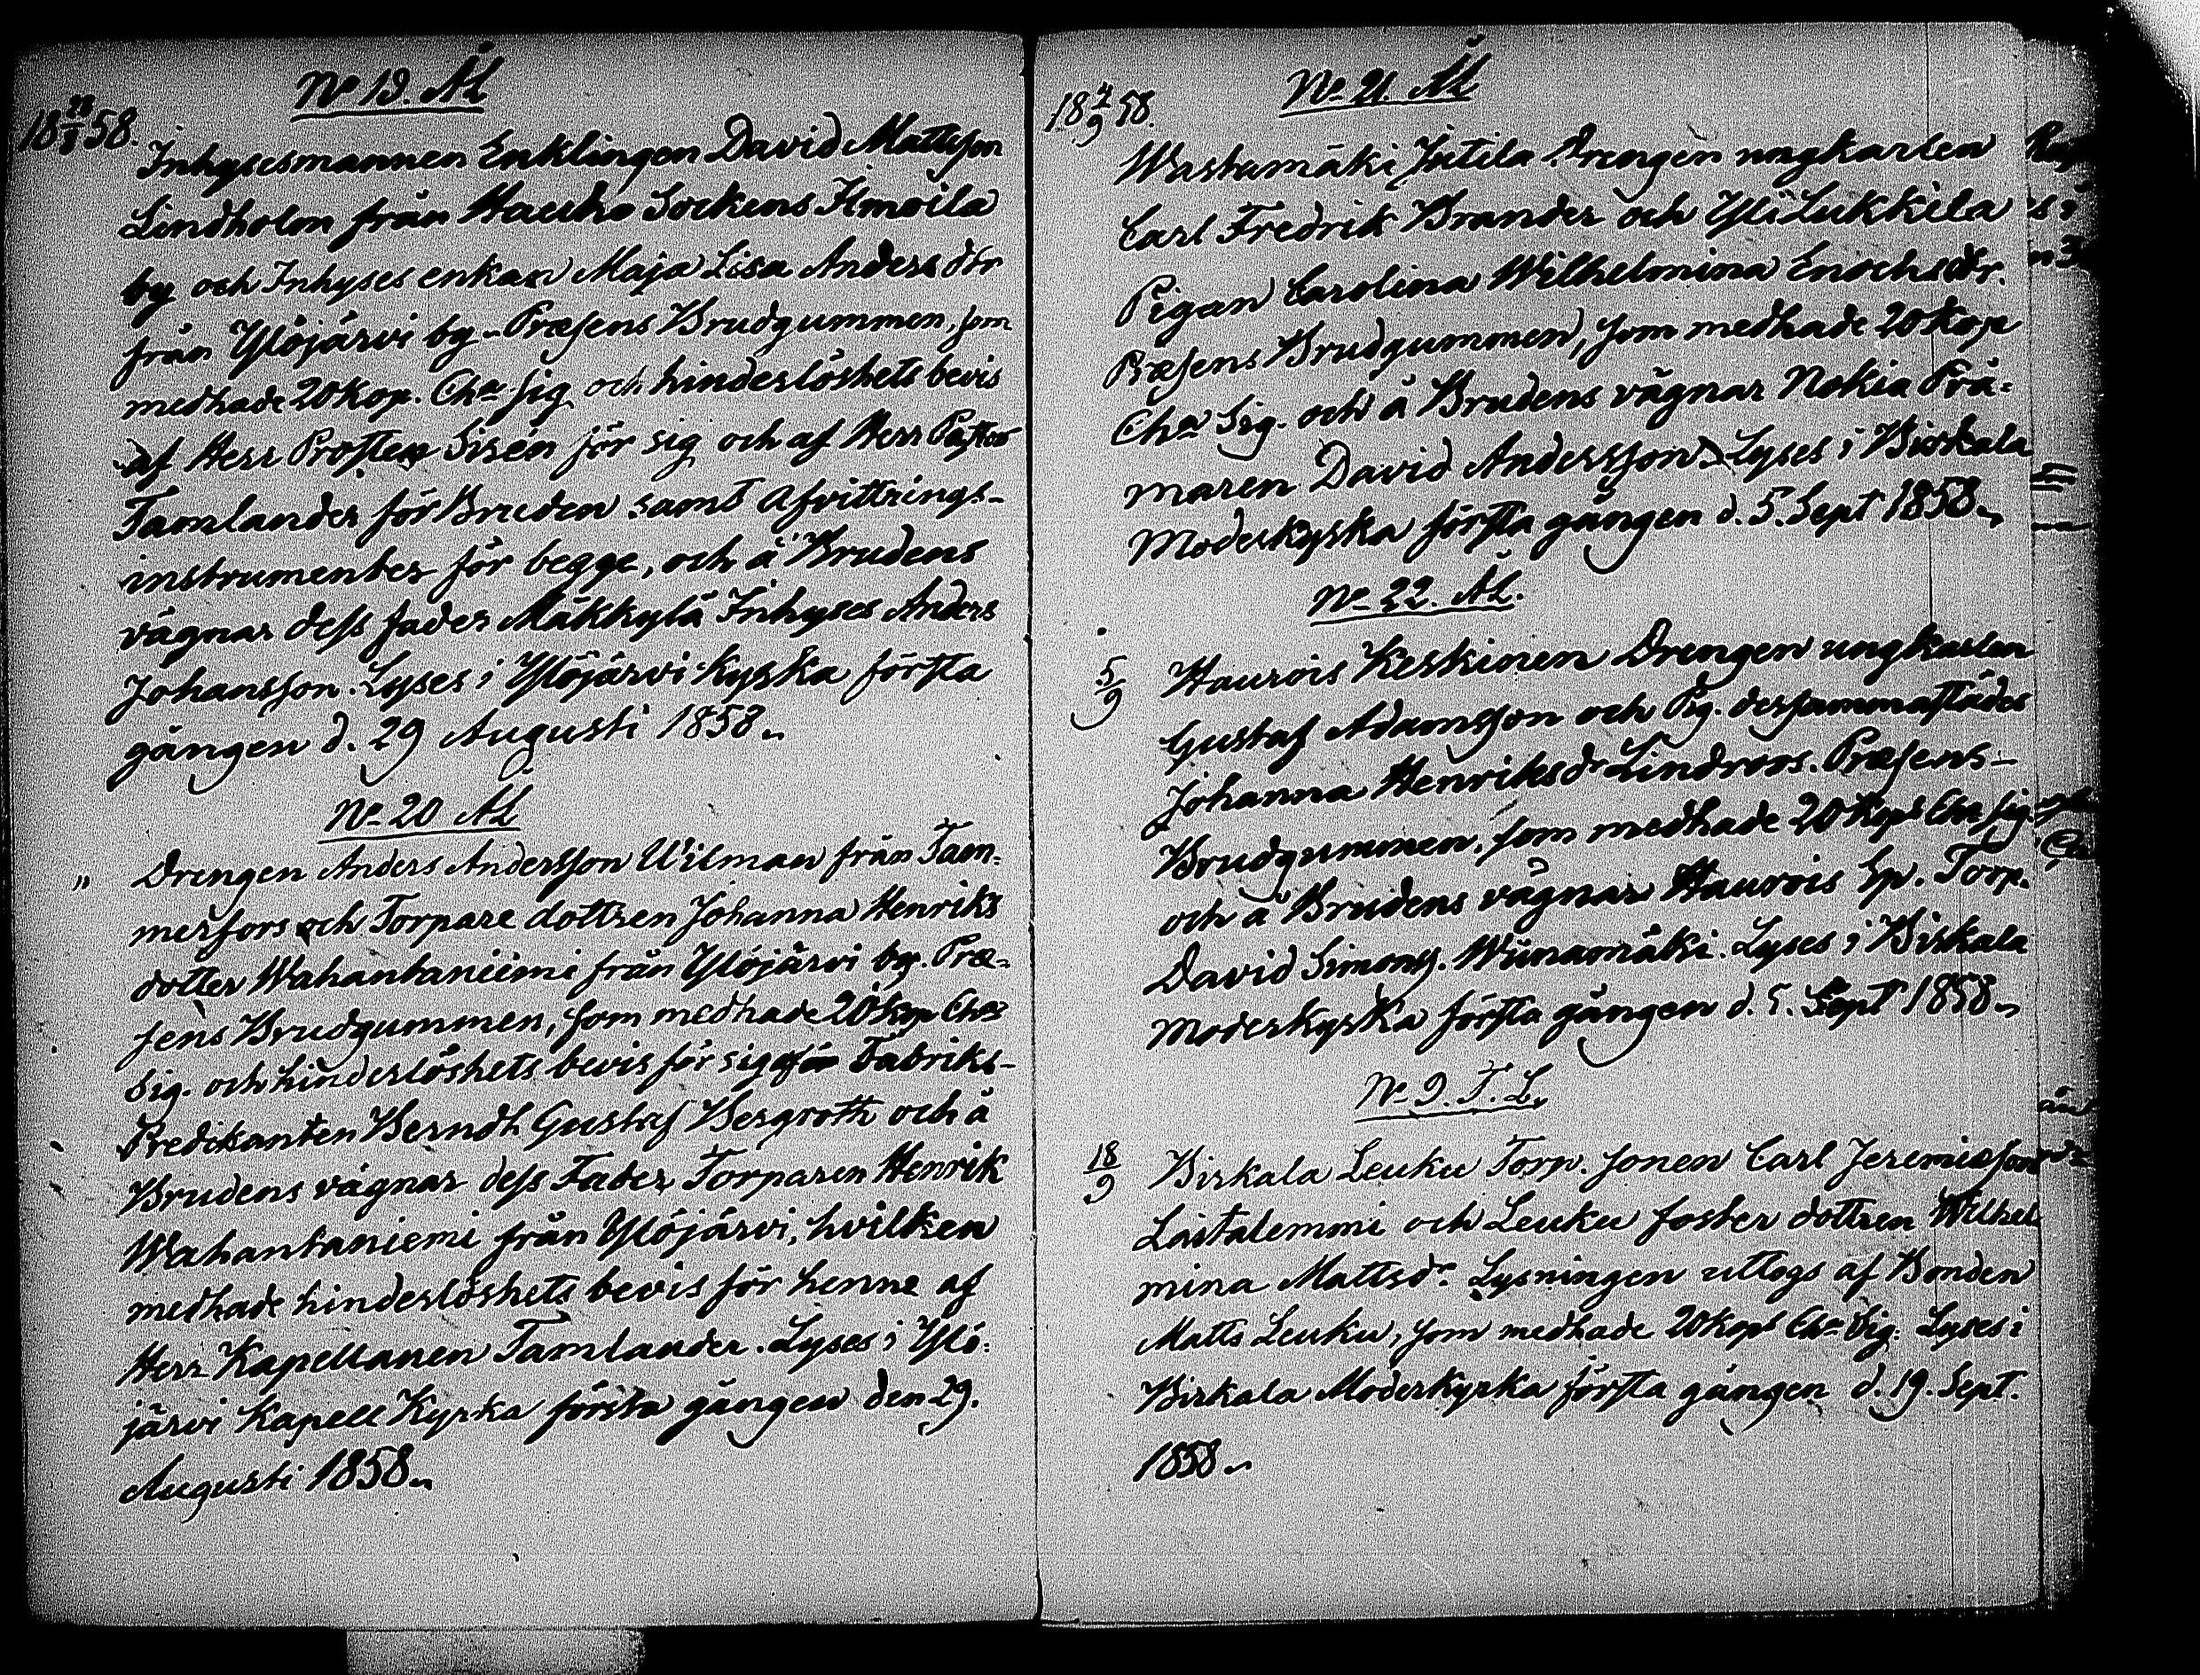 No 19. ÅL
18 28/8 58.
Inhysesmannen Enklingen David Mattsson
Lindholm från Hauho Sockens Ilmoila
by och Inhyses enkan Maja Lisa Anders dtr
från Ylöjärvi by. Præsens Brudgummen, som
medhade 20 Kop. Cha Sig. och hinderlöshets bevis
af Herr Prosten Sirén för sig och af Herr Pastor
Tamlander för Bruden samt Afvittrings-
instrumenter för begge, och å Brudens
vägnar dess fader Mäkkylä Inhyses Anders
Johansson. Lyses i Ylöjärvi Kyrka första
gången d. 29 Augusti 1858.
No 20 ÅL
" Drengen Anders Andersson Wilman från Tam-
merfors och Torpare dottren Johanna Henriks
dotter Wahantaniemi från Ylöjärvi by. Præ-
sens Brudgummen, som medhade 20 Kop Cha
Sig. och hinderlöshets bevis för sig från Fabriks-
Predikanten Berndt Gustaf Bergroth och å
Brudens vägnar dess Fader, Torparen Henrik
Wahantaniemi från Ylöjärvi, hvilken
medhade hinderlöshets bevis för henne af
Herr Kapellanen Tamlander. Lyses i Ylö-
järvi Kapell Kyrka första gången den 29.
Augusti 1858.
No 21. ÅL
18 4/9 58.
Wastamäki Jutila Drengen ungkarlen
Carl Fredrik Brander och Yli Lukkila
Pigan Carolina Wilhelmina Enochsdr.
Præsens Brudgummen, som medhade 20 Kop
Cha Sig. och å Brudens vägnar Nokia Prå-
maren David Andersson. Lyses i Birkala
Moderkyrka första gången d. 5. Sept 1858.
No 22. ÅL.
5/9 Haurois Keskinen Drengen ungkarlen
Gustaf Adamsson och Pig. dersammastädes
Johanna Henriksdr Lindroos. Præsens
Brudgummen, som medhade 20 Kop Cha Sig.
och å Brudens vägnar Haurois Sp. Torp.
David Simonss. Wiinamäki. Lyses i Birkala
Moderkyrka första gången d. 5. Sept 1858.
No 9. T. L.
18/9 Birkala Leuku Torp. sonen Carl Jeremiasson
Laitalemmi och Leuku foster dottren Wilhel
mina Mattsdr. Lysningen uttogs af Bonden
Matts Leuku, som medhade 20 Kop Cha Sig. Lyses i
Birkala Moderkyrka första gången d. 19. Sept.
1858.